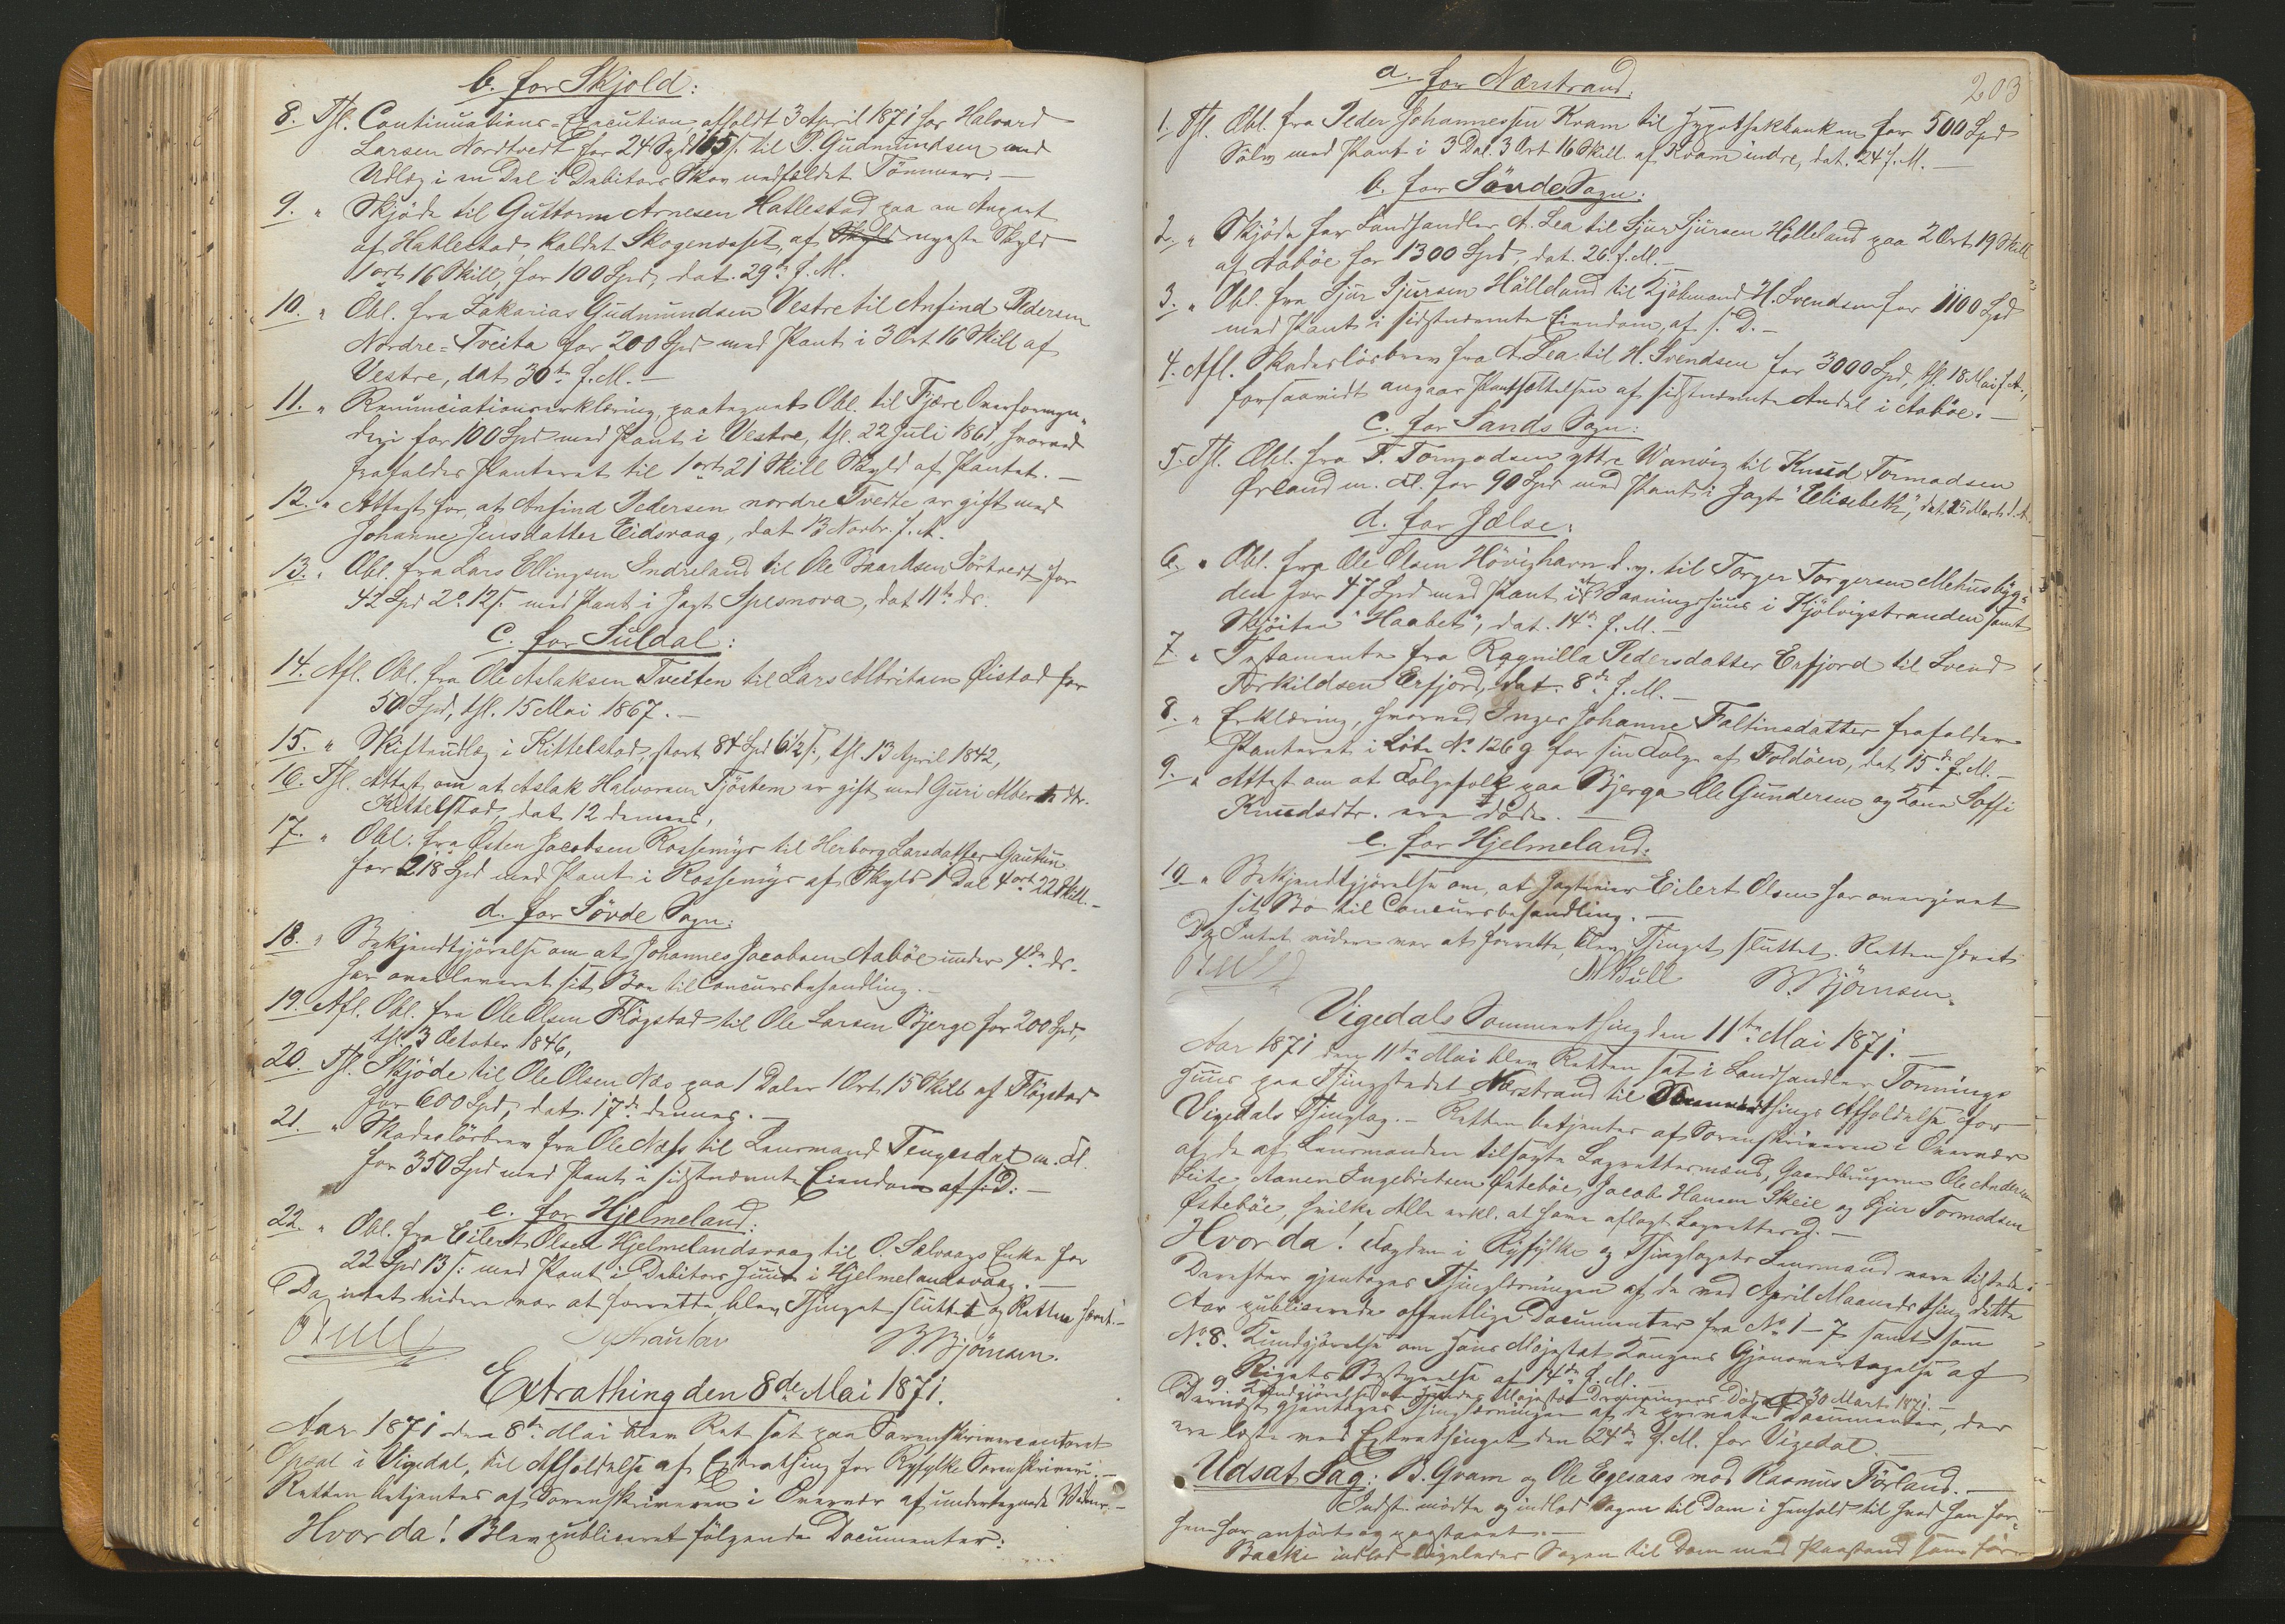 b. for Skjold:
8. Thl. Continuations-Execution afholdt 3 April 1871 hos Halvard
Larsen Nordtvedt for 24 Spd 105 s. til P. Gudmundsen med
Udlæg i en Del i Debitors Skov nedfældet Tömmer. —
9. " Skjöde til Guttorm Arnesen Hatlestad paa en Anpart
af Hatlestad, kaldet Skogendset, af nyeste Skyld
1 ort 16 Skill, for 100 Spd, dat. 29de f. M.
10. " Obl. fra Zakarias Gudmundsen Vestre til Anfind Pedersen
Nordre-Tveita for 200 Spd med Pant i 3 Ort 16 Skill af
Vestre, dat. 30te f. M. —
11. " Renunciationserklæring, paategnet Obl. til Fjære Overformyn-
deri for 100 Spd med Pant i Vestre, thl. 22 Juli 1861, hvorved
frafaldes Panteret til 1 ort 21 Skill Skyld af Pantet. —
12. " Attest for at Anfind Pedersen nordre Tvedte er gift med
Johanne Jensdatter Eidsvaag, dat. 13 Novbr. f. A.
13. " Obl. fra Lars Ellingsen Indreland til Ole Baardsen Sörtvedt for
42 Spd 2 o. 12 s. med Pant i Jagt Spesnova, dat. 11te ds.
c. for Suldal:
14. Afl. Obl. fra Ole Aslaksen Tveiten til Lars Albritsen Öistad for
50 Spd, thl. 15 Mai 1867. —
15. " Skifteudlæg i Kittelstad, stort 84 Spd 6½ s., thl. 13 April 1842,
16. Thl. Attest om at Aslak Halvorsen Tjöstem er gift med Guri Alberts dtr.
Kittelstad, dat. 12 dennes,
17. " Obl. fra Östen Jacobsen Rossemyr til Herborg Larsdatter Gautun
for 218 Spd med Pant i Rossemyr af Skyld 1 Dal. 4 ort 22 Skill. —
d. for Sövde Sogn:
18. " Bekjendtgjörelse om at Johannes Jacobsen Aaböe under 4de ds.
har overleveret sit Boe til Concursbehandling. —
19. Afl. Obl. fra Ole Olsen Flögstad til Ole Larsen Bjerge for 200 Spd,
thl. 3 October 1846,
20. Thl. Skjöde til Ole Olsen Næs paa 1 Daler 1 Ort 15 Skill af Flögstad
for 600 Spd, dat. 17de dennes. —
21. " Skadeslösbrev fra Ole Næss til Lensmand Tengesdal m. Fl.
for 350 Spd med Pant i sidstnævnte Eiendom af s. D: —
e. for Hjelmeland:
22. " Obl. fra Eilert Olsen Hjelmelandsvaag til O. Salvaags Enke for
22 Spd 13 s: med Pant i Debitors Huus i Hjelmelandsvaag. —
Da intet videre var at forrette, blev Thinget sluttet og Retten hævet. —
B. Björnsen.
Extrathing den 8de Mai 1871.
Aar 1871 den 8de Mai blev Ret sat paa Sorenskrivercontoret
Opsal i Vigedal, til Afholdelse af Extrathing for Ryfylke Sorenskriveri. —
Retten betjentes af Sorenskriveren i Overvær af undertegnede Vidner. —
Hvor da! Blev publiceret følgende Documenter:
203
a. for Nærstrand:
1. Thl. Obl. fra Peder Johannessen Kvam til Hypothekbanken for 500 Spd
Sölv med Pant i 3 Dal. 3 Ort 16 Skill. af Kvam indre, dat. 24 f. M. —
b. for Sövde Sogn:
2. " Skjöde for Landhandler A. Lea til Sjur Sjursen Hölleland paa 2 Ort 19 Skill
af Aaböe for 1300 Spd, dat. 26. f. M. —
3. " Obl. fra Sjur Sjursen Hölleland til Kjöbmand H. Svendsen for 1100 Spd
med Pant i sidstnævnte Eiendom, af s. D. —
4. Afl. Skadeslösbrev fra A. Lea til H. Svendsen for 3000 Spd, thl. 18 Mai f. A.,
forsaavidt angaar Pantsættelsen af sidstnævnte Andel i Aaböe. —
c. for Sands Sogn:
5. Thl. Obl. fra T. Tormodsen ytre Vanvig til Knud Tormodsen
Örland m. Fl. for 90 Spd med Pant i Jagt "Elisebeth", dat. 25 Marts d. A.
d. for Jelse:
6. " Obl. fra Ole Olsen Hövigharn d. y. til Torger Torgersen Mehusbyg-
den for 47 Spd med Pant i et Vaaningshuus i Kjölvigstranden samt
Skjöiten "Haabet", dat. 14de f. M. —
7. " Testamente fra Ragnilla Pedersdatter Erfjord til Svend
Torkildsen Erfjord, dat. 8de f. M. —
8. " Erklæring, hvorved Inger Johanne Faltinsdatter frafalder
Panteret i Löbe No. 126 g for sin Folge af Foldöen, dat. 15de f. M. —
9. " Attest om at Folgefolk paa Bjerga Ole Gundersen og Kone Soffi
Knudsdtr. ere döde. —
e. for Hjelmeland:
10. " Bekjendtgjörelse om, at Jagteier Eilert Olsen har overgivet
sit Bo til Concursbehandling. —
Da Intet videre var at forrette, blev Thinget sluttet. Retten hævet
M Bull B. Björnsen.
Vigedals Sommerthing den 11te Mai 1871. —
Aar 1871 den 11te Mai blev Retten sat i Landhandler Tonnings
Huus paa Thingstedet Nærstrand til Sommerthings Afholdelse for
Vigedals Thinglag. — Retten betjentes af Sorenskriveren i Overvær
af de af Lensmanden tilsagte Lagrettesmænd, Gaardbrugerne Ole Andersen
Leite, Aanen Ingebretsen Østeböe, Jacob Hansen Skeie og Sjur Tormodsen
Østeböe, hvilke Alle erkl. at have aflagt Lagretteed. —
Hvor da! Fogden i Ryfylke og Thinglagets Lensmand vare tilstede.
Derefter gjentoges Thinglæsningen af de ved April Maaneds thing dette
Aar publicerede offentlige Documenter fra No. 1–7 samt som
No. 8. Kundgjörelse om Hans Majestæt Kongens Gjenovertagelse af
Rigets Bestyrelse af 14de f. M. —
9 Kundgjörelse om Hendes Majestæt Dronningens Död af 30 Marts 1871. —
Dernæst gjentoges Thinglæsningen af de private Documenter, der
ere læste ved Extrathinget den 24de f. M. for Vigedal. —
Udsat Sag: B. Gram og Ole Egesaas mod Rasmus Förland. —
Indst. mödte og indlod Sagen til Dom i Henhold til hvad han for-
hen har anført og paastaaet. —
Backe indlod ligeledes Sagen til Dom med Paastand som för